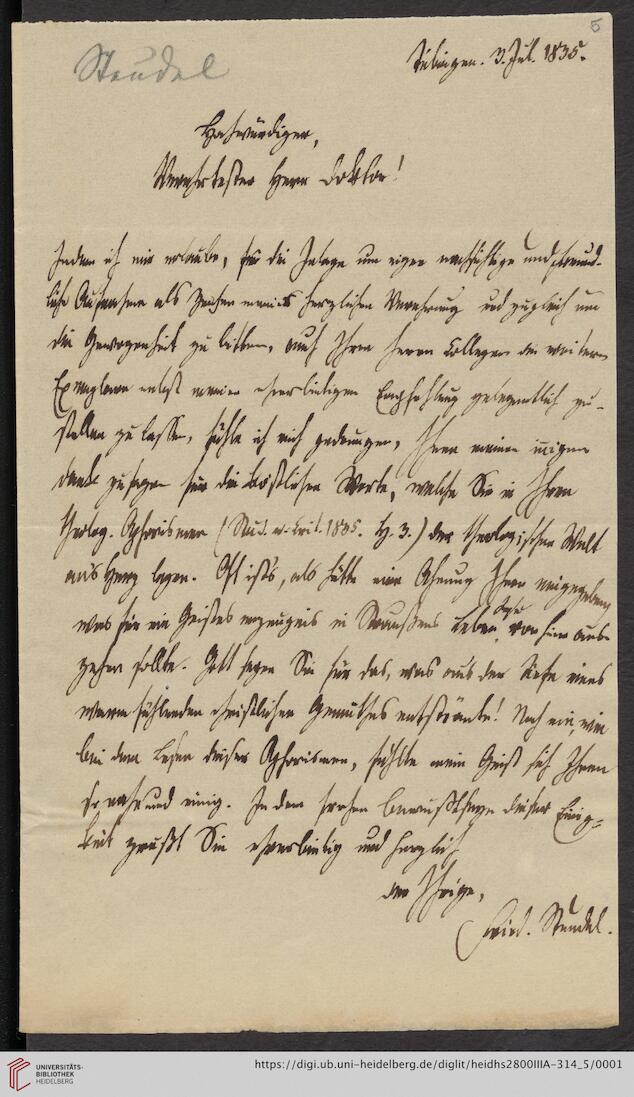 5
Steudel
Tübingen. 3. Jul. 1835.
Hochwürdiger,
Verehrtester Herr Doktor!
Indem ich mir erlaube, für die Inlage um eigne nachsichtige und freund-
liche Aufnahme als Zeichen meines herzlichen Verehrung und zugleich um
die Gewogenheit zu bitten, auch Ihren Herrn Collegen die weitern
Exemplare nebst meiner ehrerbietigen Empfehlung gelegentlich zu-
stellen zu lassen, fühle ich mich gedrungen, Ihnen meinen innigen
Dank zu sagen für die köstlichen Worte, welche Sie in Ihren
theolog. Aphorismen (Stud. u. Krit. 1835. H. 3.) der theologischen Welt
ans Herz legen. Oft ist's, als hätte eine Ahnung Ihnen eingegeben
was für ein Geisteserzeugnis in Straußens Leben Jesu von hier aus-
gehen sollte. Gott segne Sie für das, was aus der Tiefe eines
warm fühlenden christlichen Gemüthes entströmte! Noch nie, wie
bei dem Lesen dieser Aphorismen, fühlte mein Geist sich Ihnen
so nahe und einig. In dem frohen Bewußtseyn dieser Einig-
keit grüßt Sie ehrerbietig und herzlich
der Ihrige,
Fried. Steudel.
UNIVERSITÄTS-
BIBLIOTHEK
HEIDELBERG
https://digi.ub.uni-heidelberg.de/diglit/heidhs2800IIIA-314_5/0001